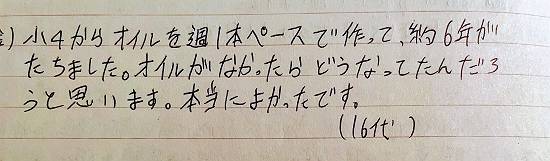 ) 小4からオイルを週1本ペースで作って、約6年が
たちました。オイルがなかったらどうなってたんだろ
うと思います。本当によかったです。
(16代)